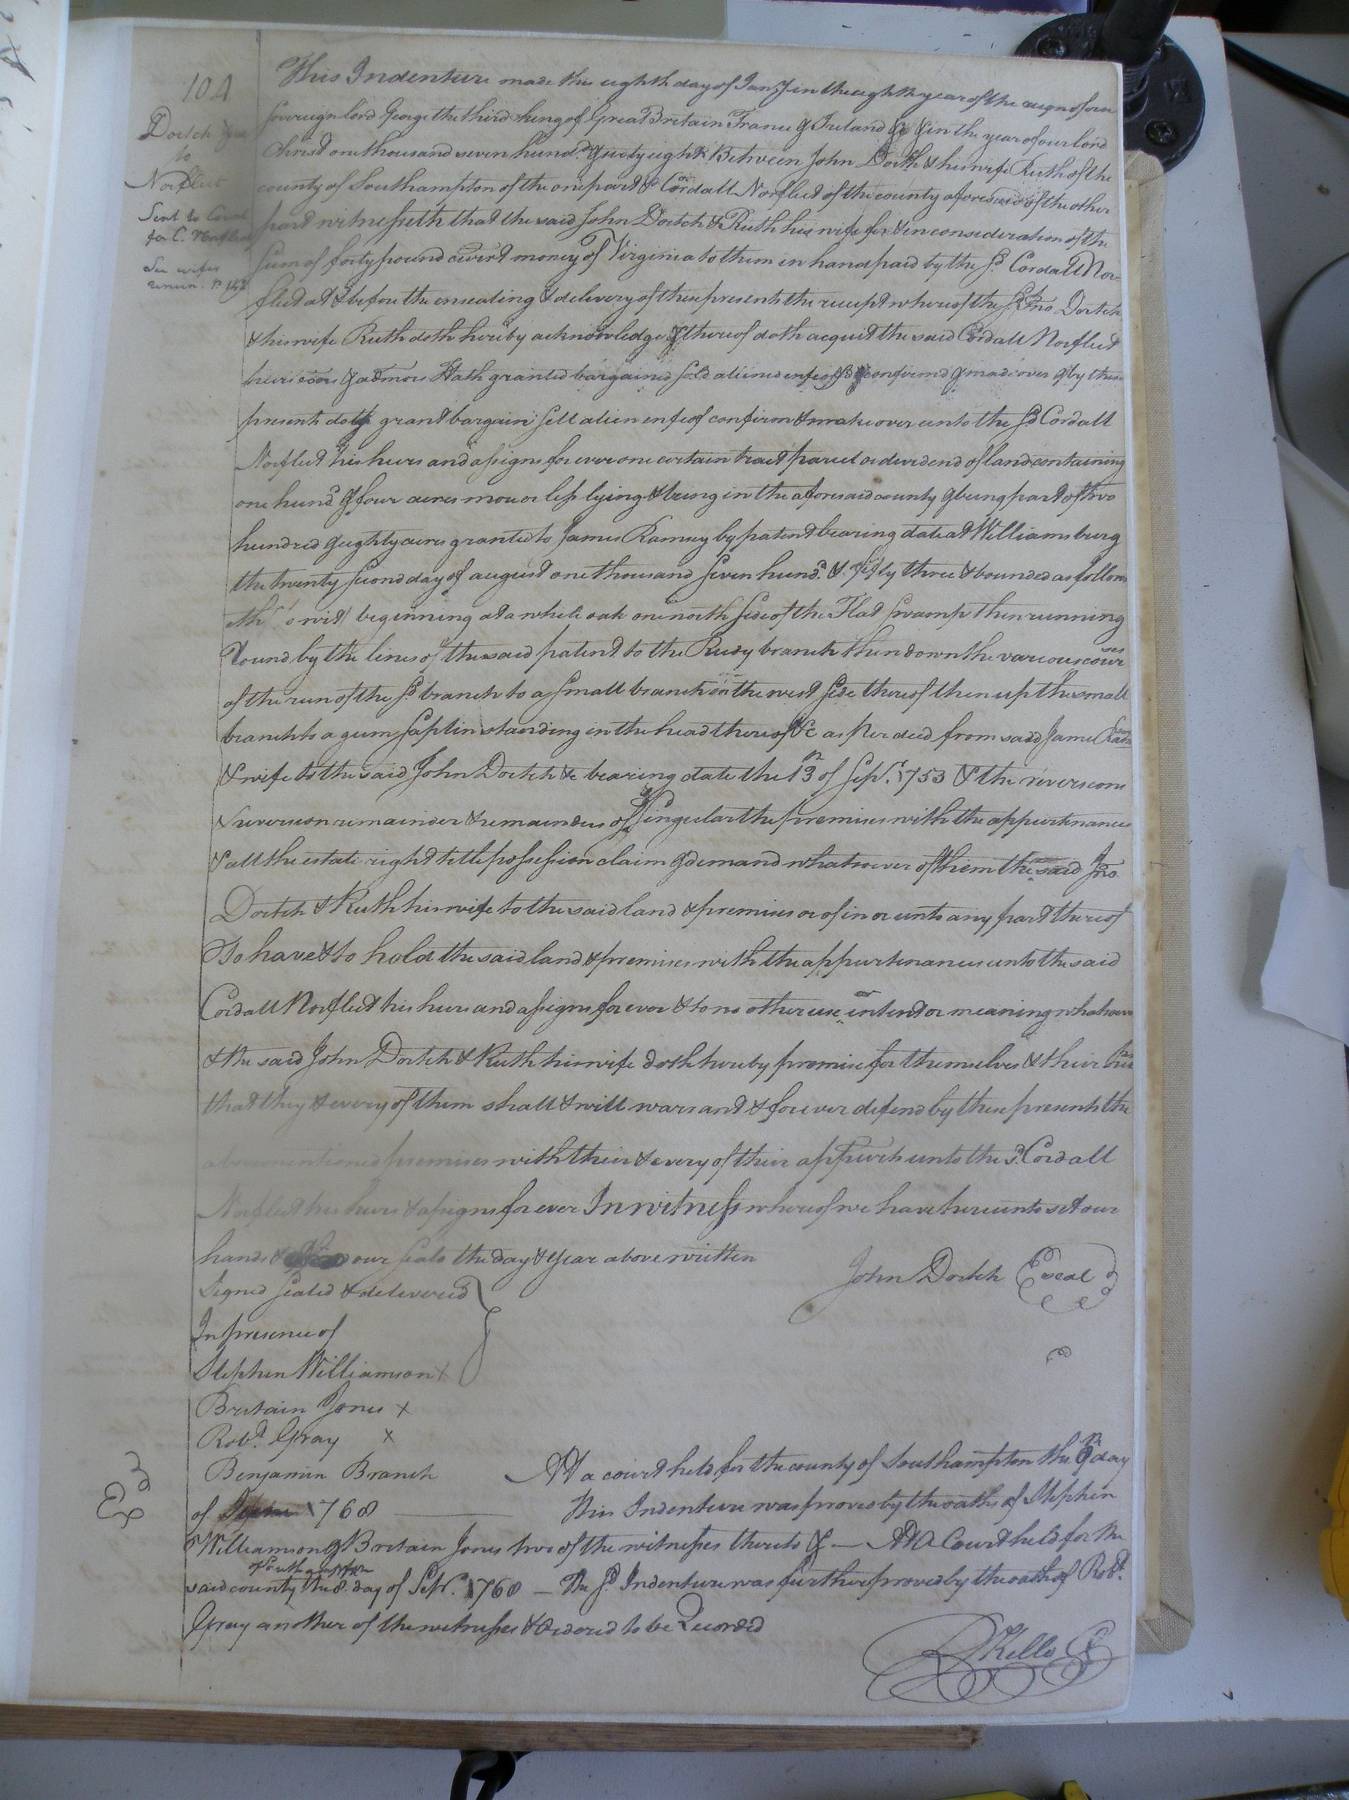 104
Dortch &ux
to
Norfleet
Sent to Cordl
for C. Norfleet
See wifes
renun. P. 142
This Indenture made the eighth day of Jany in the eighth year of the reign of our
sovereign lord George the third king of Great Britain France & Ireland &c & in the year of our lord
Christ one thousand seven hund.d & sixty eight Between John Dortch & his wife Ruth of the
county of Southampton of the one part & Cordall Norfleet of the county aforesaid of the other
part witnesseth that the said John Dortch & Ruth his wife for & in consideration of the
sum of forty pound current money of Virginia to them in hand paid by the sd Cordall Nor-
fleet at & before the ensealing & delivery of these presents the receipt whereof the sd Jno. Dortch
& his wife Ruth doth hereby acknowledge & thereof doth acquit the said Cordall Norfleet
heirs exors & admors Hath granted bargained sold aliened enfeoffd & confirmed & made over & by these
present doth grant bargain sell alien enfeof confirm & make over unto the sd Cordall
Norfleet his heirs and assigns for ever one certain tract parcel or dividend of land containing
one hund.d & four acres more or less lying & being in the aforesaid county & being part of two
hundred & eighty acres granted to James Ramsey by patent bearing date at Williamsburg
the twenty second day of august one thousand seven hund.d & fifty three & bounded as follow
eth to wit/ beginning at a white oak on north side of the Flat swamp then running
round by the lines of the said patent to the Reedy branch then down the various courses
of the run of the sd branch to a small branch on the west side thereof then up the small
branch to a gum saplin standing in the head thereof &c as per deed from said James
& wife to the said John Dortch & bearing date the 13th of Sepr. 1753 & the reversions
& reversion remainder & remainders of all & singular the premises with the appurtenances
& all the estate right title possession claim & demand whatsoever of them the said Jno.
Dortch & Ruth his wife to the said land & premises or of in or unto any part thereof
To have & to hold the said land & premises with the appurtenances unto the said
Cordall Norfleet his heirs and assigns for ever & to no other use intent or meaning whatsoever
& the said John Dortch & Ruth his wife doth hereby promise for themselves & their heirs
that they & every of them shall & will warrant & forever defend by these presents the
abovementioned premises with their & every of their appurts unto the sd. Cordall
Norfleet his heirs & assigns for ever In witness whereof we have hereunto set our
hands & our seals the day & year above written
John Dortch seal
Signed sealed & delivered
In presence of
Stephen Williamson x
Britain Jones x
Robt. Gray x
Benjamin Branch
At a court held for the county of Southampton the 9th day
of 1768 This Indenture was proved by the oaths of Stephen
Williamson & Britain Jones two of the witnesses thereto & — At a Court held for the
said county of Southampton the 8. day of Sepr. 1768 — The sd Indenture was further proved by the oath of Robt.
Gray another of the witnesses & Ordered to be Recorded
R Kello Ck